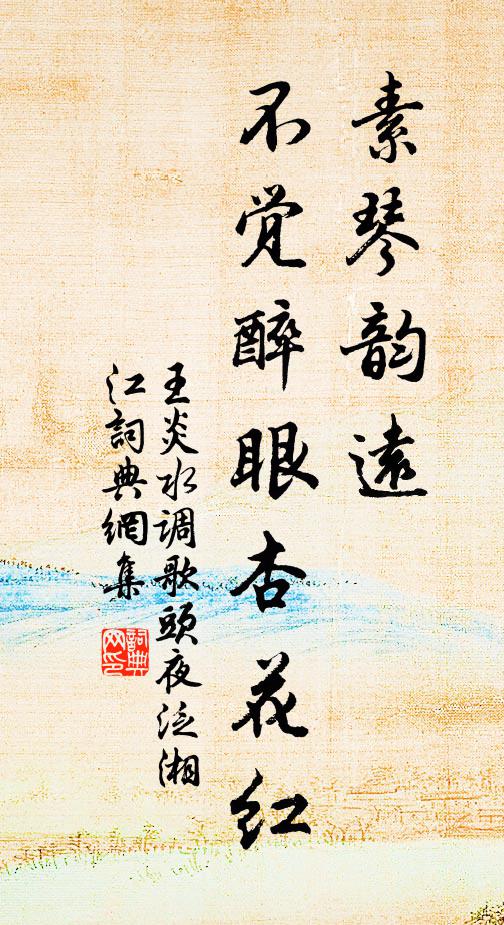 素琴韵遠
不觉醉眼杏花红
王炎水调歌頭夜泛湘
江詞典網集
詞典
网印